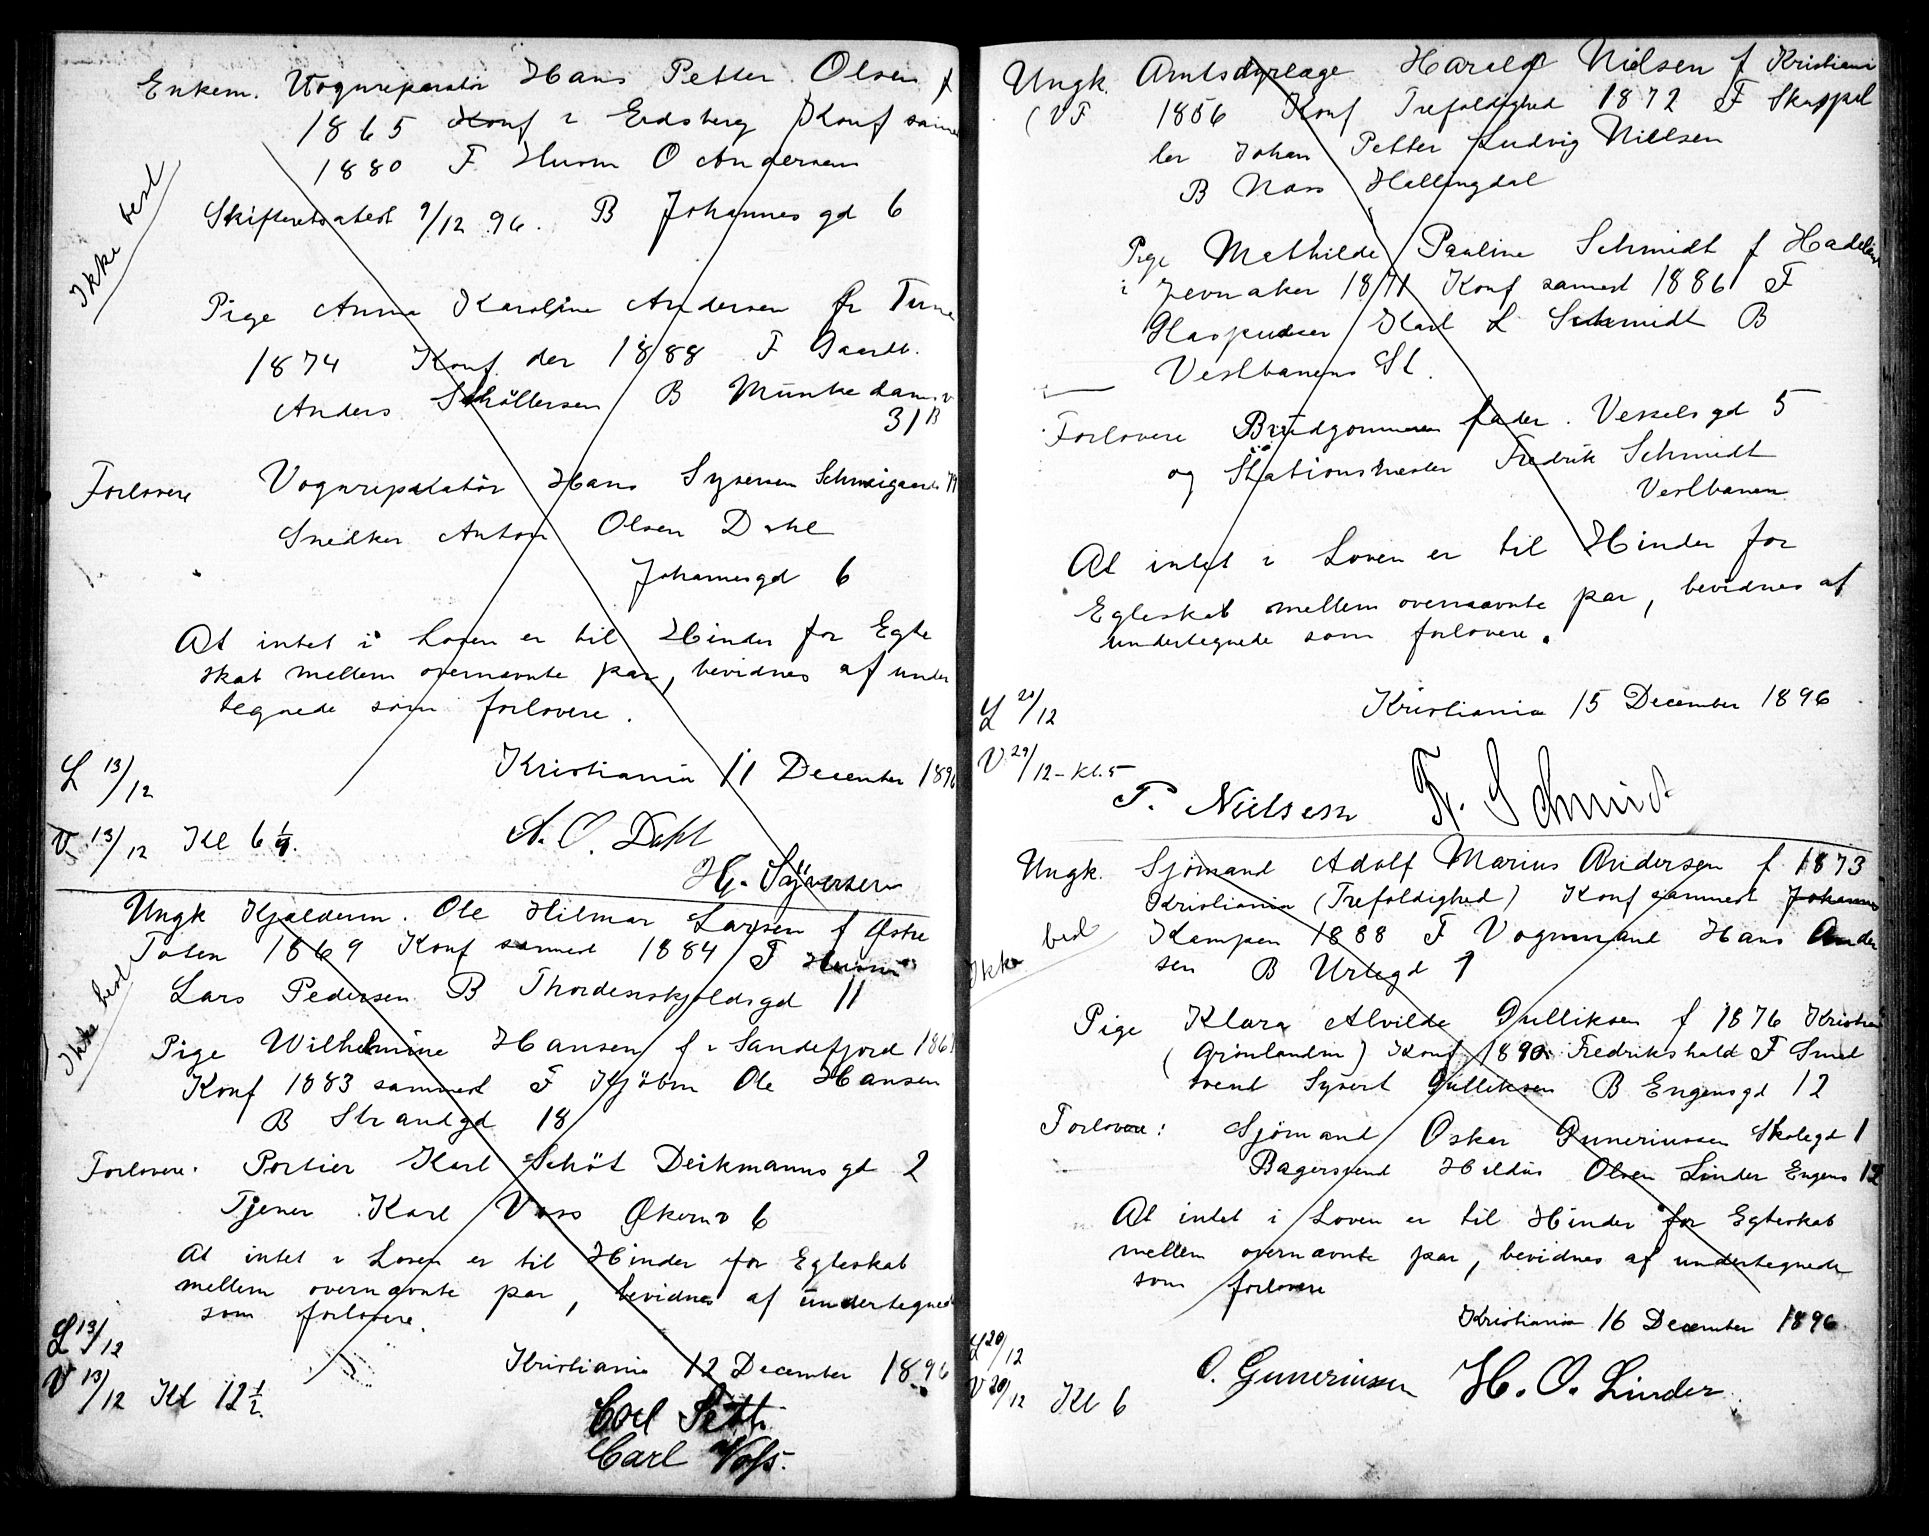 Enkem. Vognreparatör Hans Petter Olsen f
1865 Konf i Eidsberg Konf samme
1880 F Husm O Andersen
Skifteretsatest 9/12 96. B Johannes gd 6
Ikke best
Pige Anna Karoline Andersen fr Tune
1874 Konf der 1888 F Gaardb.
Anders B Munkedamsv
31 B
Forlovere Vognreparatör Hans Syversen Schweigaards
Snedker Anton Olsen Dahl
Johannesgd 6
At intet i Loven er til Hinder for Egte
skab mellem overnævnte par, bevidnes af under
tegnede som forlovere.
L 13/12
Kristiania 11 December 1896
V 13/12 Kl 6 1/4.
A. O. Dahl
H. Syversen
Ungk Kjelderm. Ole Hilmar Larsen f Østre
Toten 1869 Konf samest 1884 F Husm
Lars Pedersen B Thordenskjoldsgd 11
Ikke best
Pige Wilhelmine Hansen f i Sandefjord
Konf 1883 samest F Kjöbm Ole Hansen
B Strandgd 18
Forlovere. Portier Karl Schöt Deikmanns gd 2
Tjener Karl Voss Økernv 6
At intet i Loven er til Hinder for Egteskab
mellem overnævnte par, bevidnes af undertegnede
som forlovere.
L 13/12
Kristiania 12 December 1896
V 13/12 Kl 12 1/2
Carl
Carl Voss.
Ungk. Amtsdyrlæge Harald Nielsen f Kristiani
(VF 1856 Konf Trefoldighed 1872 F Skappel
ler Johan Petter Ludvig Nielsen
B Næs Hallingdal
Pige Mathilde Pauline Schmidt f Hadeland
i Jevnaker 1871 Konf samest 1886 F
Glaspudser Karl L Schmidt B
Vestbanens St.
Forlovere Brudgommens fader. Vesselsgd 5
og Stationsmester Fredrik Schmidt
Vestbanen
At intet i Loven er til Hinder for
Egteskab mellem overnævnte par, bevidnes af
undertegnede som forlovere.
L 20/12
Kristiania 15 December 1896
V 29/12 - Kl. 5
P. Nielsen Fr. Schmidt
Ungk. Sjömand Adolf Marius Andersen f 1873
Kristiania (Trefoldighed) Konf samest Johannes
Ikke best
Kampen 1888 F Vognmand Hans Ander
sen B Urtegd 1
Pige Klara Alvilde Gulliksen f 1876 Kristia
(Grönlandm) Konf 1890 Fredrikshald F Smed
svent Syvert Gulliksen B Engensgd 12
Forlovere: Sjömand Oskar Guneriussen Skolegd 1
Bagersvend Hildus Olsen Linder Engens 12
At intet i Loven er til Hinder for Egteskab
mellem overnævnte par, bevidnes af undertegnede
som forlovere
Kristiania 16 December 1896
L 20/12
V 20/12 Kl 6
O. Gunerinssen H. O. Linder.